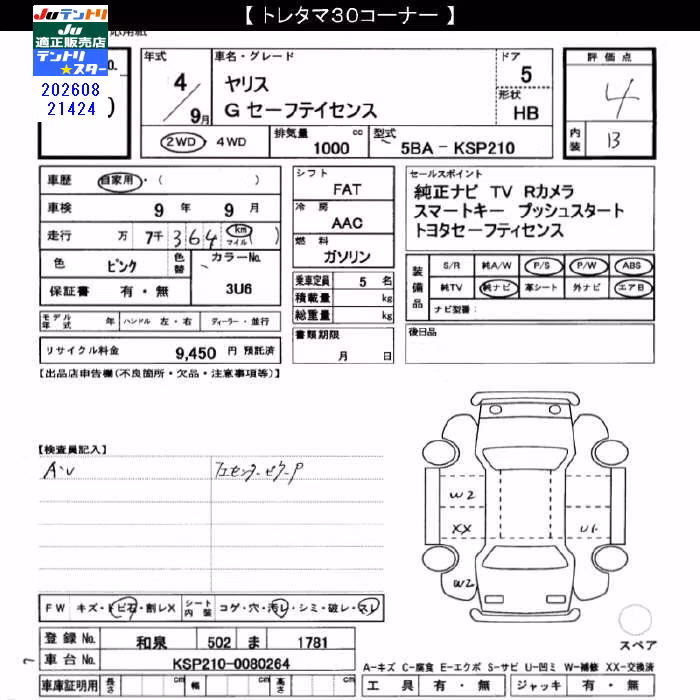 【トレタマ30コーナー】
Juテントリ
Ju
適正販売店
テントリ
★スター
202608
21424
年式
4/9月
車名・グレード
ヤリス
G セーフテイセンス
ドア
5
形状
HB
評価点
4
内装
B
2WD・4WD
排気量
1000 cc
型式
5BA - KSP210
車歴 自家用・( )
車検 9年 9月
走行 万 7千364 km マイル ( )
色 ピンク 色替 カラーNo. 3U6
保証書 有・無
シフト
FAT
冷房
AAC
燃料
ガソリン
乗車定員 5 名
積載量 kg
総重量 kg
書類期限
月 日
セールスポイント
純正ナビ TV Rカメラ
スマートキー プッシュスタート
トヨタセーフティセンス
装備品
S/R 純A/W P/S P/W ABS
純TV 純ナビ 革シート 外ナビ エアB
ナビ型番:
後日品
モデル年式 年 ハンドル 左・右 ディーラー・並行
リサイクル料金 9,450 円 預託済
【出品店申告欄(不良箇所・欠品・注意事項等)】
【検査員記入】
A・U
W2
XX
W2
U1
FW キズ・トビ石・割レX シート内装 コゲ・穴・汚レ・シミ・破レ・スレ
登録No. 和泉 502 ま 1781
車台No. KSP210-0080264
車庫証明用 長さ cm 幅 cm 高さ cm
スペア
A-キズ C-腐食 E-エクボ S-サビ U-凹ミ W-補修 XX-交換済
工具 有・無 ジャッキ 有・無